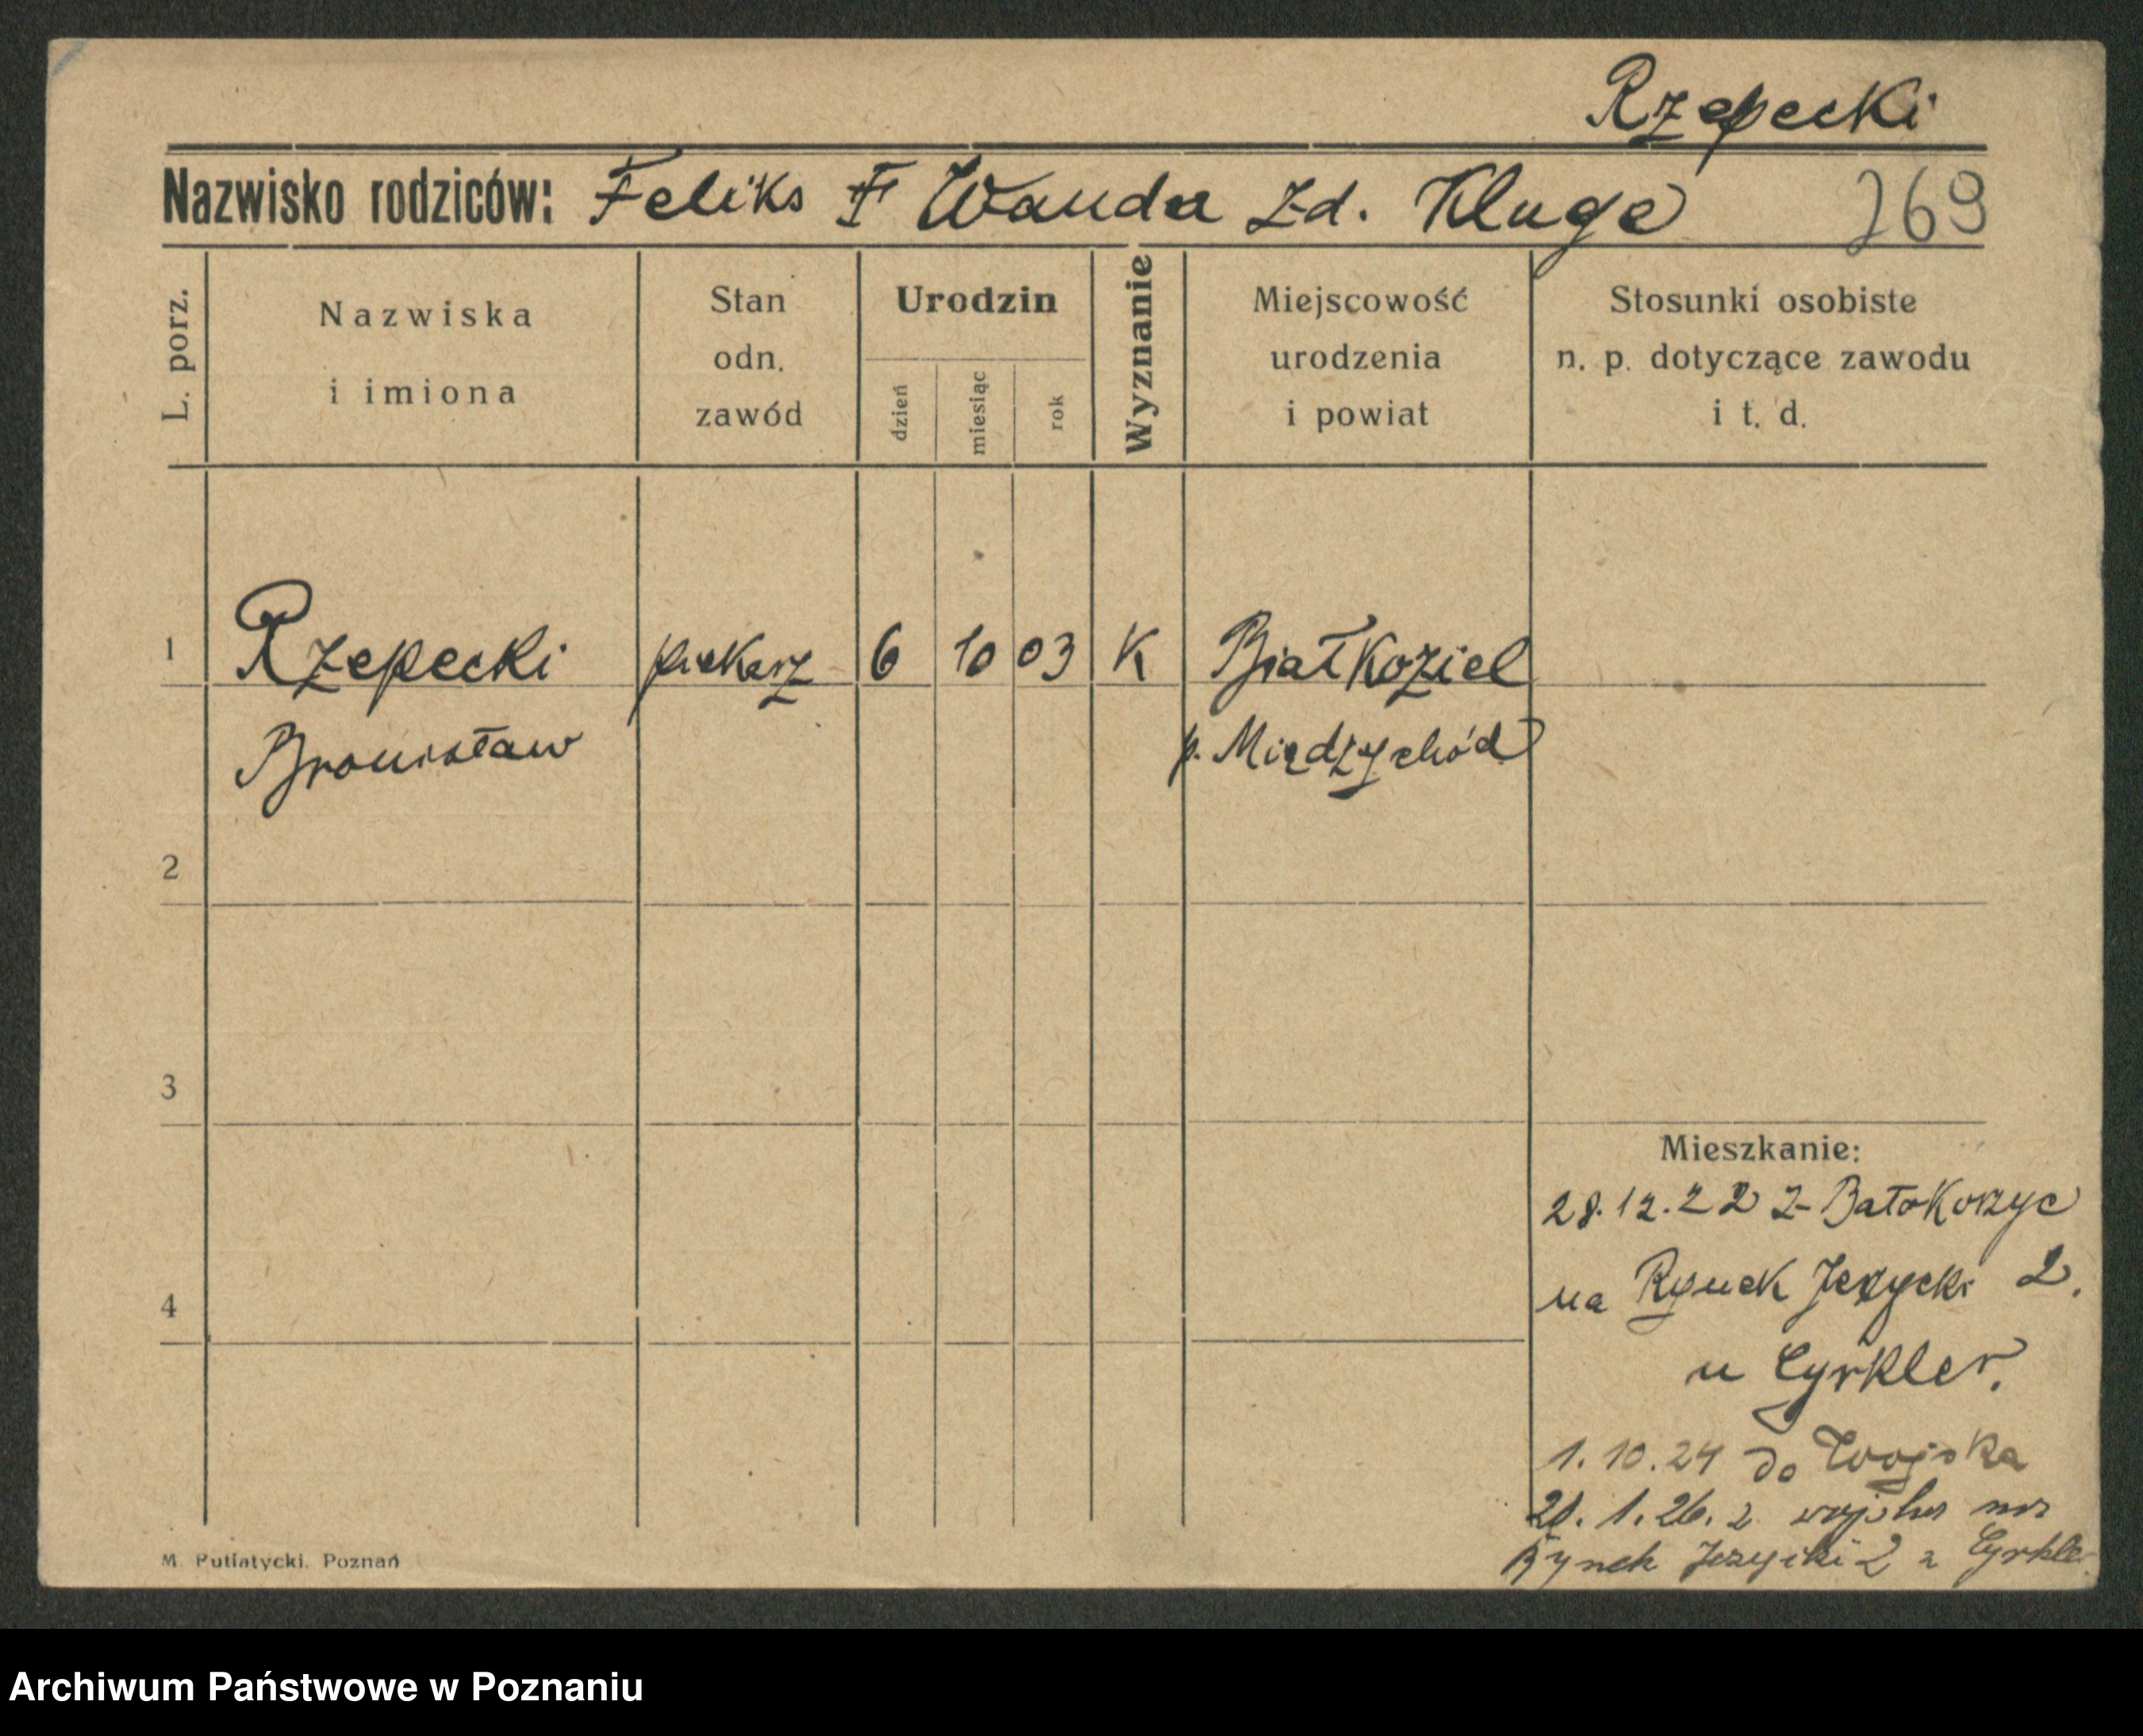 Rzepecki
Nazwisko rodziców: Feliks F Wanda zd. Kluge 269
L. porz.
Nazwiska i imiona
Stan odn. zawód
Urodzin
dzień
miesiąc
rok
Wyznanie
Miejscowość urodzenia i powiat
Stosunki osobiste n. p. dotyczące zawodu i t. d.
1 Rzepecki piekarz 6 10 03 K Białkoziel
Bronisław p. Międzychód
2
3
Mieszkanie:
28.12.22 z Batokorzyc
na Rynek Jeżycki 2.
4
u Cyrkler.
1.10.24 do Wojska
1.26. z wojska
Rynek Jeżycki 2
M. Putiatycki. Poznań
Archiwum Państwowe w Poznaniu